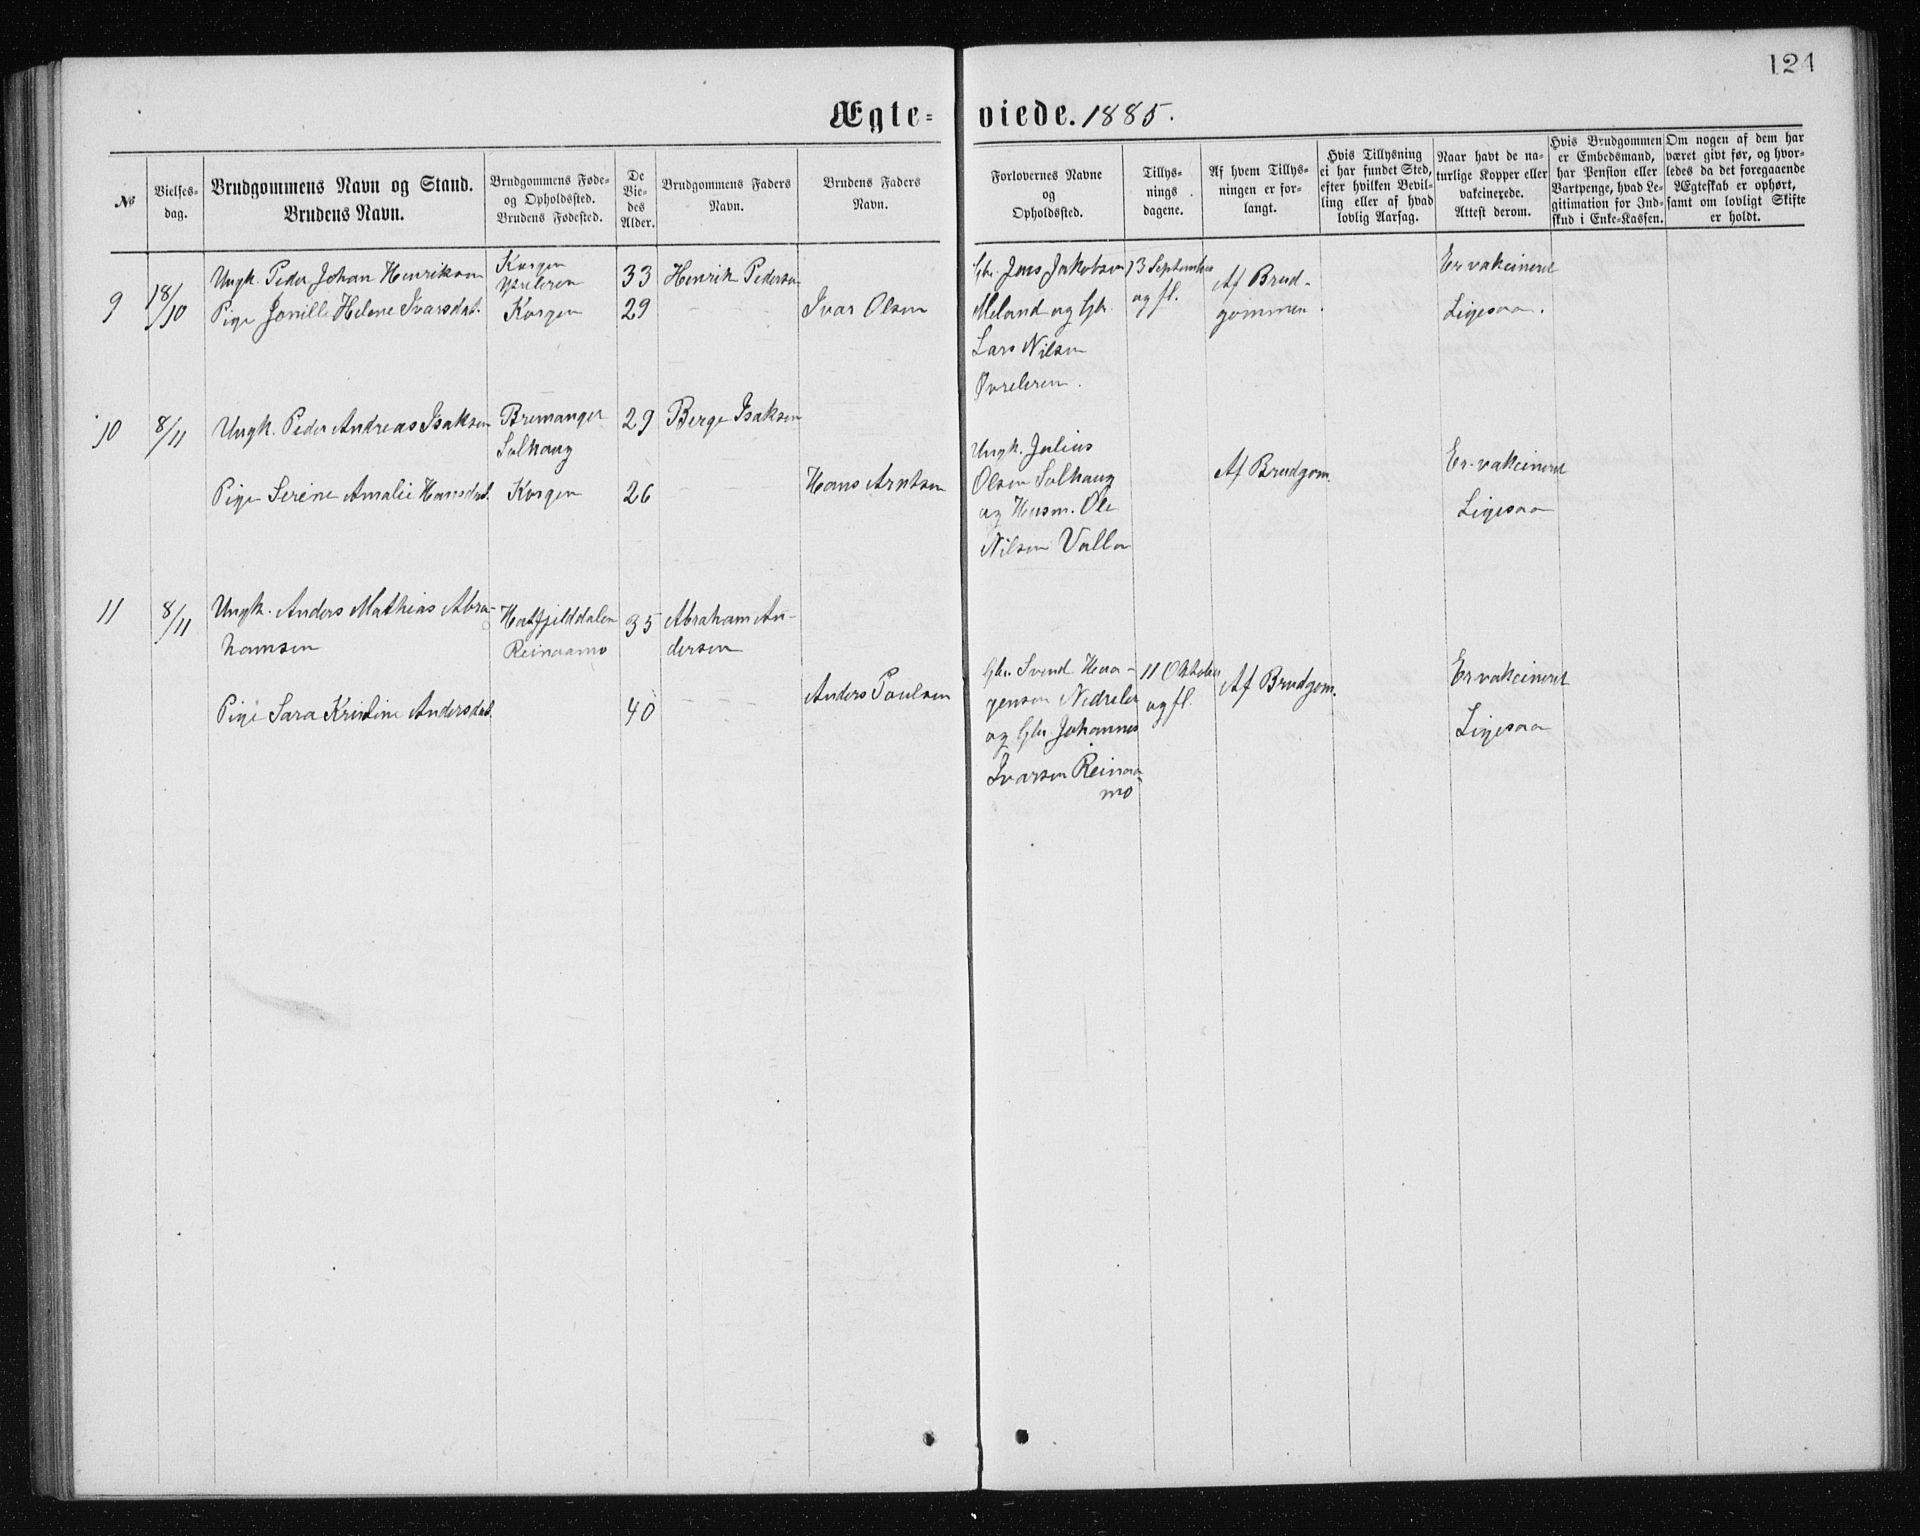 124
Ægte- viede. 1885.
№
Vielses-
dag.
Brudgommens Navn og Stand.
Brudens Navn.
Brudgommens Føde-
og Opholdssted.
Brudens Fødested.
De
Vie-
des
Alder.
Brudgommens Faders
Navn.
Brudens Faders
Navn.
Forlovernes Navne
og
Opholdssted.
Tillys-
nings
dagene.
Af hvem Tillys-
ningen er for-
langt.
Hvis Tillysning
ei har fundet Sted,
efter hvilken Bevil-
ling eller af hvad
lovlig Aarsag.
Naar havt de na-
turlige Kopper eller
vakcinerede.
Attest derom.
Hvis Brudgommen
er Embedsmand,
har Pension eller
Vartpenge, hvad Le-
gitimation for Ind-
skud i Enke-Kassen.
Om nogen af dem har
været givt før, og hvor-
ledes da det foregaaende
Ægteskab er ophørt,
samt om lovligt Skifte
er holdt.
9
18/10
Ungk. Peder Johan Henriksen
Pige Jonille Helene Ivarsdat.
Korgen
Korgen
33
29
Henrik Pedersen
Ivar Olsen
Gbr. Jens Jakobsen
Meland og Gbr.
Lars Nilsen
Øvreleren.
13 September
og fl.
Af Brud-
gommen.
Er vakcineret
Ligesaa.
10
8/11
Ungk. Peder Andreas Isaksen
Pige Serine Amalie Hansdat.
Bremanger
Solhaug
Korgen
29
26
Berge Isaksen
Hans Arntsen
Ungk. Julius
Olsen Solhaug
og Husm. Ole
Nilsen Valla
Af Brudgom.
Er vakcineret
Ligesaa
11
8/11
Ungk. Anders Mathias Abra-
hamsen
Pige Sara Kristine Andersdat.
Hatfjelddalen
Reinaamo
35
40
Abraham An-
dersen
Anders Paulsen
Gbr. Svend Haa-
gensen Nedreler
og Gbr. Johannes
Ivarsen Reinaa-
mo
11 Oktober
og fl.
Af Brudgom.
Er vakcineret
Ligesaa